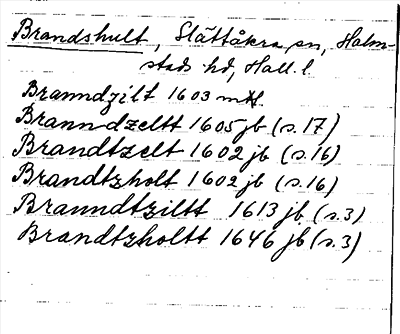 Brandshult, Slättåkra sn, Halm-
stads hd, Hall. l.
Branndzilt 1603 mtl.
Branndzeltt 1605 jb (s. 17)
Brandtzelt 1602 jb (s. 16)
Brandtzholt 1602 jb (s. 16)
Branndtziltt 1613 jb (s. 3)
Brandtzholtt 1646 jb (s. 3)